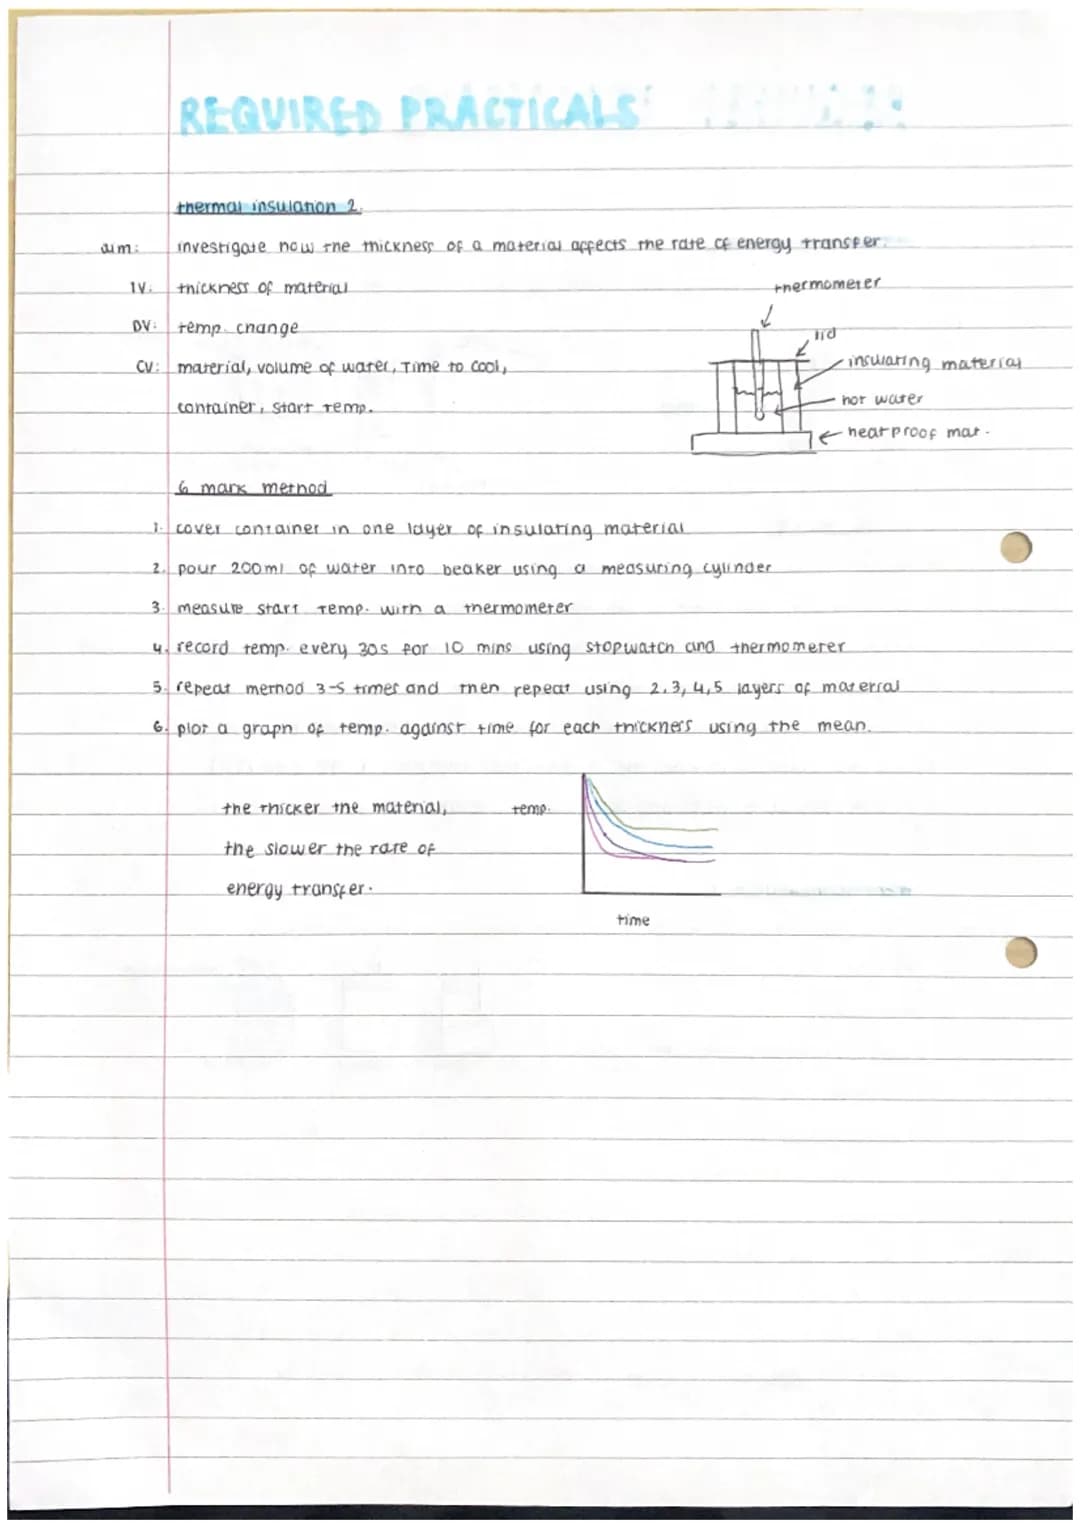 REQUIRED PRACTICALS
thermal insulation 2.
aim: investigate how the thickness of a material affects the rate of energy transfer.
IV: thickness of material
DV: temp. change
CV: material, volume of water, Time to cool,
container, start temp.
thermometer
lid
insulating material
hot water
heatproof mat.
6 mark method
1. cover container in one layer of insulating material
2. pour 200ml of water into beaker using a measuring cylinder
3. measure start temp. with a thermometer
4. record temp. every 30s for 10 mins using stopwatch and thermometer
5. repeat method 3-5 times and then repeat using 2,3,4,5 layers of material
6. plot a graph of temp. against time for each thickness using the mean.
the thicker the material,
the slower the rate of
energy transfer.
temp.
time